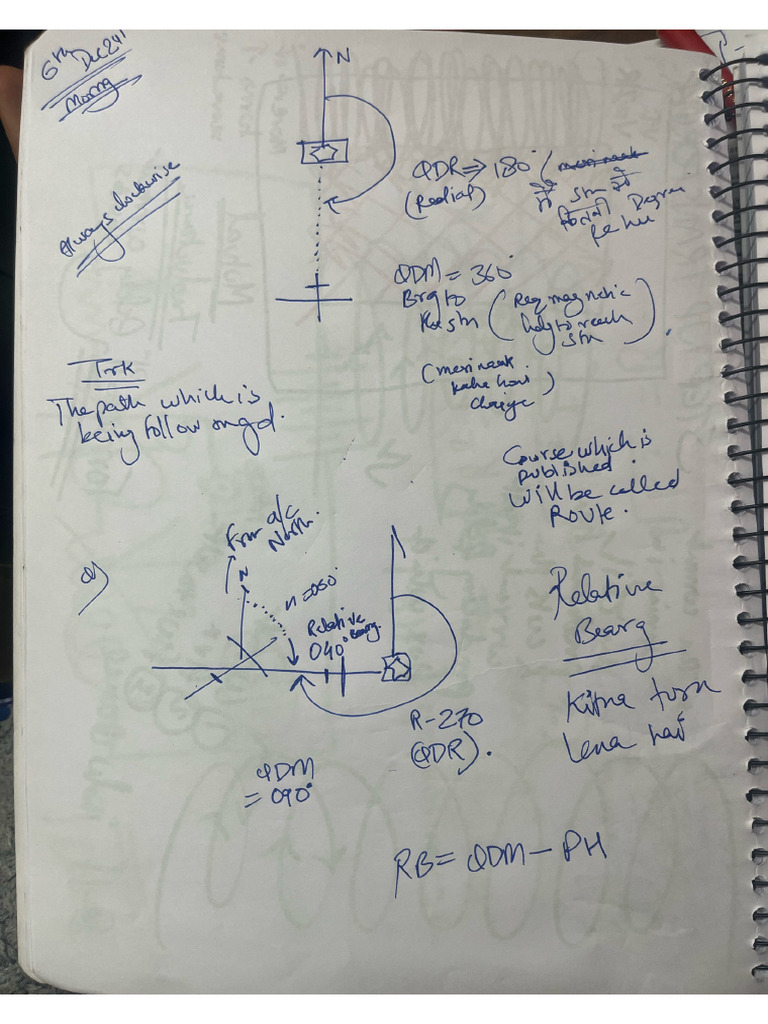 6th Dec 24
Morng
N
Always clockwise
QDR ⇒ 180° (
(Radial)
stn से
Degree
pe hu
QDM = 360°
Brg to
the stn
(Req magnetic
hdg to reach
stn)
(meri naak
kaha honi
chaiye)
Trk
The path which is
being follow on gd.
Course which is
published
will be called
Route.
Q)
From a/c
North.
N
H = 050°
Relative
Bearng.
040°
R-270
(QDR).
QDM
= 090°
Relative
Bearg
Kitna turn
lena hai
RB = QDM - PH